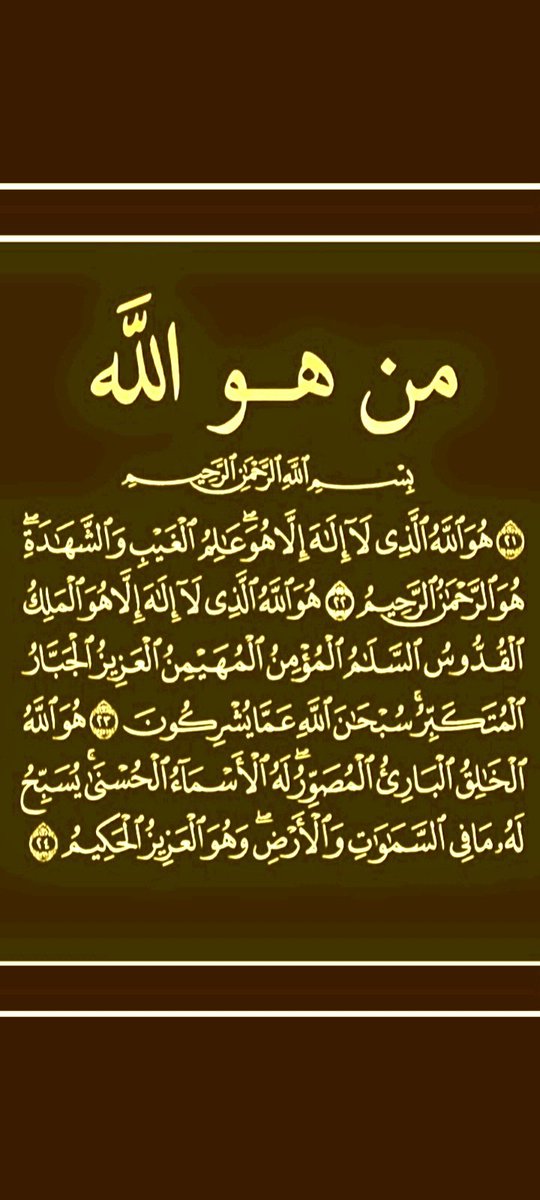 من هو اللَّه
بِسْمِ ٱللَّهِ ٱلرَّحْمَٰنِ ٱلرَّحِيمِ
٢١ هُوَ ٱللَّهُ ٱلَّذِى لَآ إِلَٰهَ إِلَّا هُوَ ۖ عَٰلِمُ ٱلْغَيْبِ وَٱلشَّهَٰدَةِ ۖ
هُوَ ٱلرَّحْمَٰنُ ٱلرَّحِيمُ ٢٢ هُوَ ٱللَّهُ ٱلَّذِى لَآ إِلَٰهَ إِلَّا هُوَ ٱلْمَلِكُ
ٱلْقُدُّوسُ ٱلسَّلَٰمُ ٱلْمُؤْمِنُ ٱلْمُهَيْمِنُ ٱلْعَزِيزُ ٱلْجَبَّارُ
ٱلْمُتَكَبِّرُ ۚ سُبْحَٰنَ ٱللَّهِ عَمَّا يُشْرِكُونَ ٢٣ هُوَ ٱللَّهُ
ٱلْخَٰلِقُ ٱلْبَارِئُ ٱلْمُصَوِّرُ ۖ لَهُ ٱلْأَسْمَآءُ ٱلْحُسْنَىٰ ۚ يُسَبِّحُ
لَهُۥ مَا فِى ٱلسَّمَٰوَٰتِ وَٱلْأَرْضِ ۖ وَهُوَ ٱلْعَزِيزُ ٱلْحَكِيمُ ٢٤